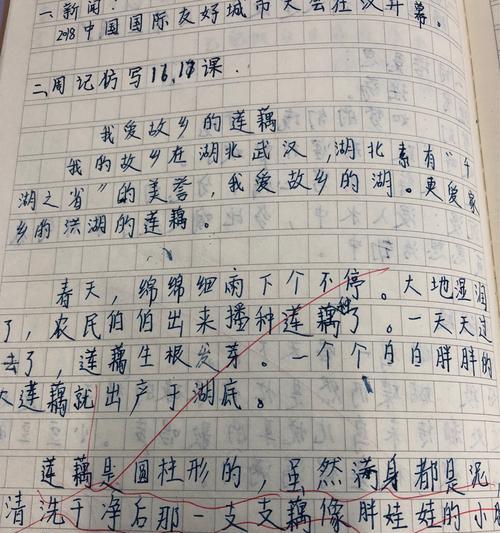 一、新闻:
2018中国国际友好城市大会在汉开幕。
二周记仿写16,18课.
我爱故乡的莲藕
我的故乡在湖北武汉,湖北素有“千
湖之省”的美誉,我爱故乡的湖。更爱家
乡的洪湖的莲藕。
春天,绵绵细雨下个不停。大地湿润
了,农民伯伯出来播种莲藕种了。一天天过
去了,莲藕生根发芽。一个个白白胖胖的
大莲藕就出产于湖底。
莲藕是圆柱形的,虽然满身都是泥,
清洗干净后那一支支藕像胖娃娃的小